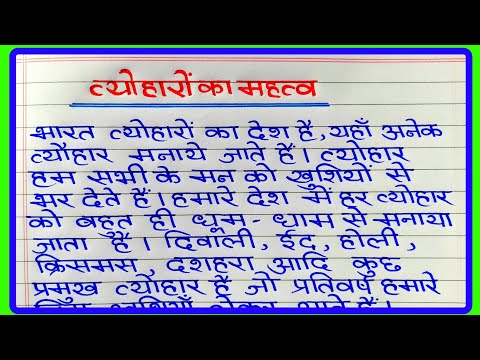 त्योहारों का महत्व
भारत त्योहारों का देश है, यहाँ अनेक
त्यौहार मनाये जाते हैं। त्योहार
हम सभी के मन को खुशियों से
भर देते हैं। हमारे देश में हर त्योहार
को बहुत ही धूम-धाम से मनाया
जाता है। दिवाली, ईद, होली,
क्रिसमस, दशहरा आदि कुछ
प्रमुख त्योहार हैं जो प्रतिवर्ष हमारे